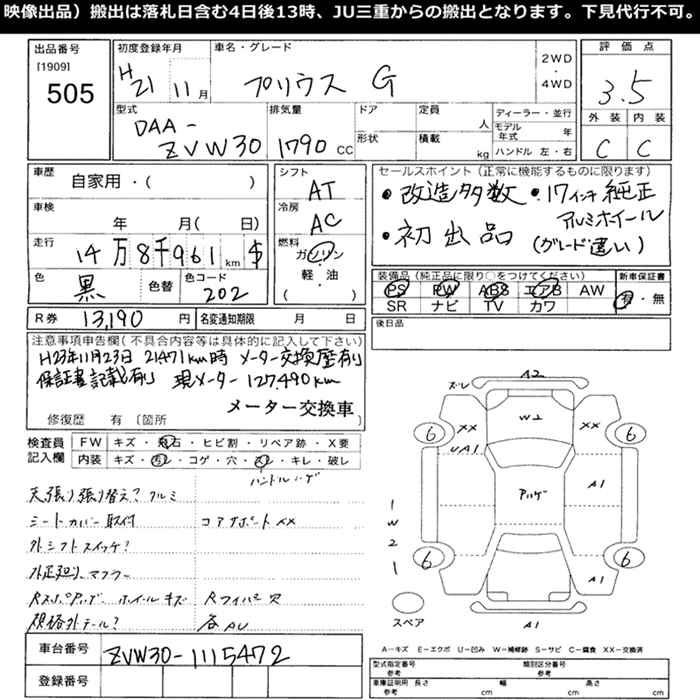 映像出品）搬出は落札日含む4日後13時、JU三重からの搬出となります。下見代行不可。
出品番号
[1909]
505
初度登録年月
H21 11月
車名・グレード
プリウス G
2WD
・
4WD
評価点
3.5
外装 内装
C C
型式
DAA-
ZVW30
排気量
1790 CC
ドア
形状
定員 人
積載 kg
ディーラー・並行
モデル年式 年
ハンドル 左・右
車歴
自家用・( )
車検
年 月( 日)
走行
14万8千961km
色
黒
色替
色コード
202
シフト
AT
冷房
AC
燃料
ガソリン
軽・油
( )
セールスポイント（正常に機能するものに限ります）
・改造多数 ・17インチ純正
アルミホイール
・初出品 (グレード違い)
装備品（純正品に限り○をつけてください）
新車保証書
PS PW ABS エアB AW
SR ナビ TV カワ
有・無
後日品
R券 13,190円
名変通知期限 月 日
注意事項申告欄(不具合内容等は具体的に記入して下さい)
H23年11月23日 21471km時 メーター交換歴有り
保証書記載有り 現メーター 127,490km
メーター交換車
修復歴 有〔箇所
検査員
記入欄
FW キズ・飛石・ヒビ割・リペア跡・X要
内装 キズ・汚レ・コゲ・穴・スレ・キレ・破レ
ハンドルハゲ
天張り張り替え? クルミ
シートカバー取付
コアサポートXX
外シフトスイッチ?
外足廻り、マフラー
ホイールキズ
穴
規格外テール?
各AU
車台番号 ZVW30-1115472
登録番号
A2
ズレ
W2
XX
UA1
XX
6
6
アハゲ
A1
1
W
2
1
6
6
A1
A1
スペア
A-キズ E-エクボ U-凹み W-補修跡 S-サビ C-腐食 XX-交換済
型式指定番号
参考
類別区分番号
車庫証明用 長さ
参考 cm
幅
cm
高さ
cm